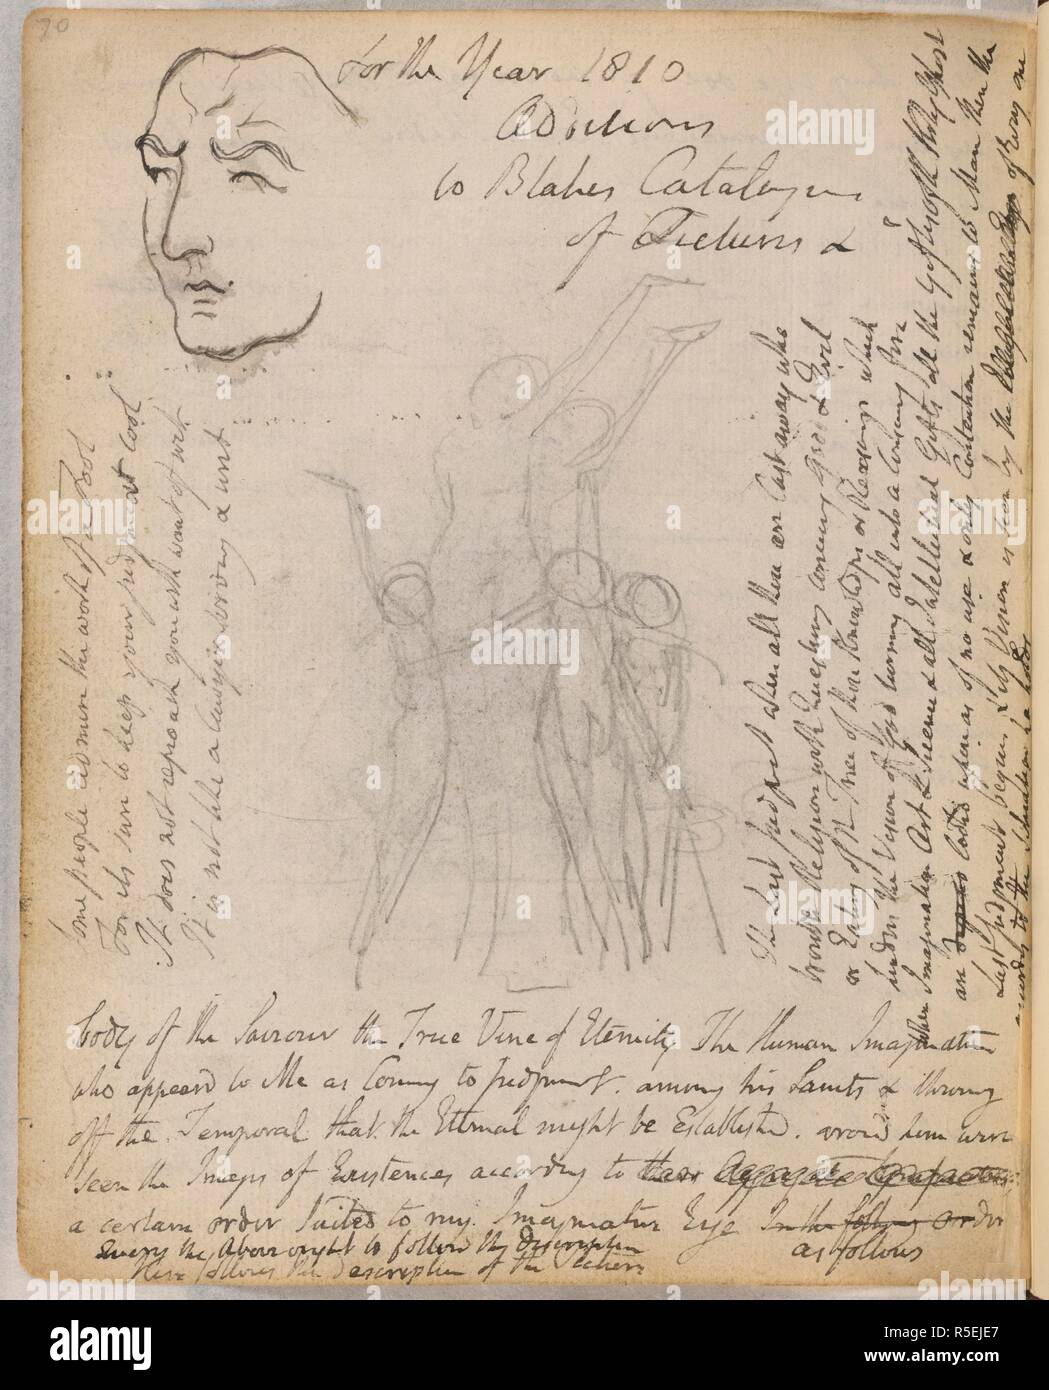 70
For the Year 1810
Additions
to Blakes Catalogue
of Pictures &
Some people admire the work of a Fool
For its sure to keep your judgment cool
It does not reproach you with want of wit
It is not like a lawyer serving a writ
The Last Judgment when all those are Cast away who
trouble Religion with Questions concerning Good & Evil
or Eating of the Tree of those Knowledges or Reasonings which
hinder the Vision of God turning all into a Consuming fire
When Imagination Art & Science & all Intellectual Gifts all the Gifts of the Holy Ghost
are lookd upon as of no use & only Contention remains to Man then the
Last Judgment begins & its Vision is seen by the of Every one
according to the Situation he holds
body of the Saviour the True Vine of Eternity The Human Imagination
who appeard to Me as Coming to Judgment. among his Saints & throwing
off the Temporal that the Eternal might be Establishd. around him were
seen the Images of Existences according to
a certain order Suited to my Imaginative Eye In the following order
as follows
Query the Above ought to follow the description
Here follows the description of the Picture
alamy
a
Image ID: R5EJE7
www.alamy.com